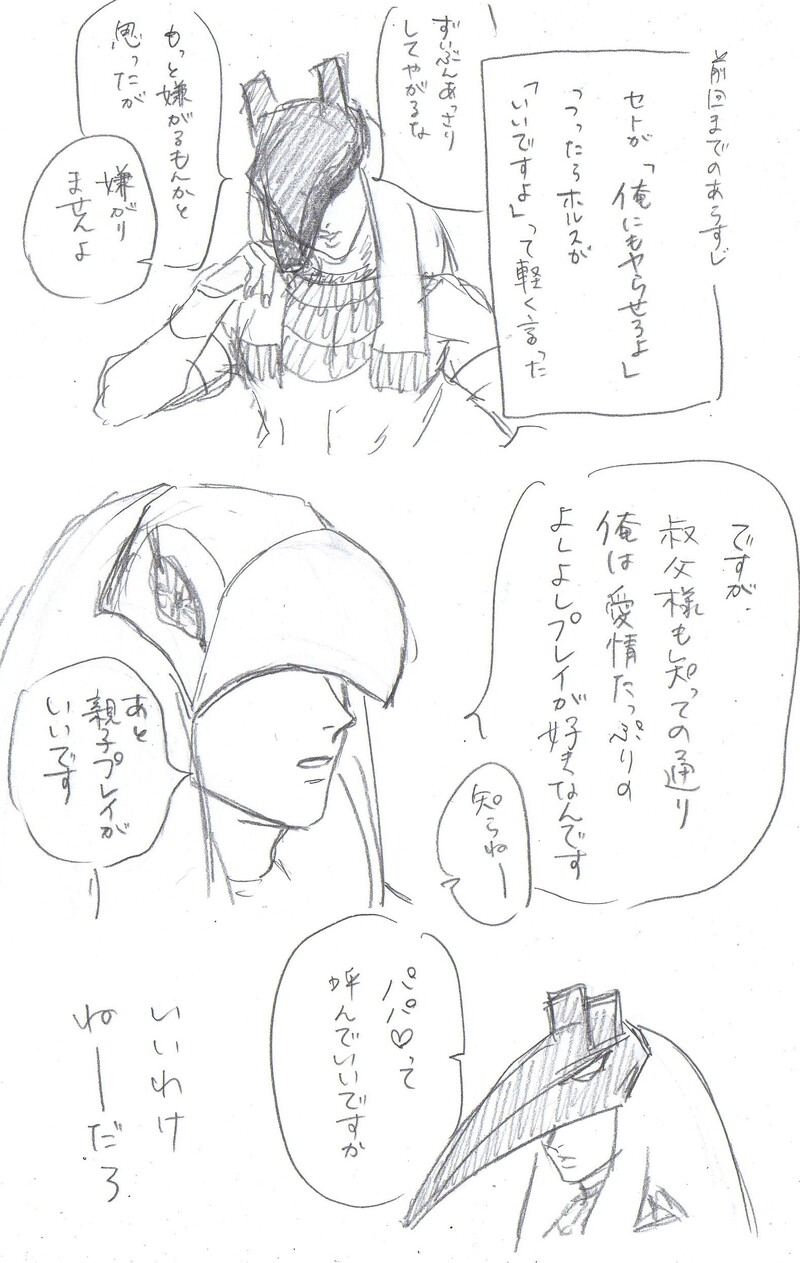 前回までのあらすじ
セトが「俺にもヤらせろよ」
つったらホルスが
「いいですよ」って軽く言った
ずいぶんあっさり
してやがるな
もっと嫌がるもんかと
思ったが
嫌がり
ませんよ
ですが
叔父様も知っての通り
俺は愛情たっぷりの
よしよしプレイが好きなんです
知らねー
あと
親子プレイが
いいです
パパ♡って
呼んでいいですか
いいわけ
ねーだろ